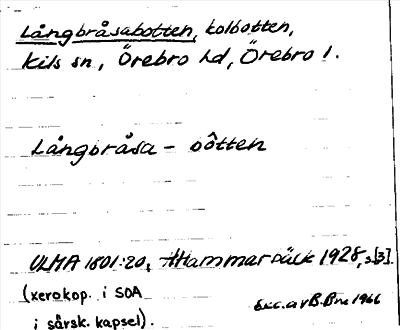 Långbråsabotten, kolbotten,
Kils sn, Örebro hd, Örebro l.
Långbråsa - bôtten
ULMA 1801:20, Hammarbäck 1928, s.[3].
(xerokop. i SOA
i särsk. kapsel).
Exc. av B. Bne 1966